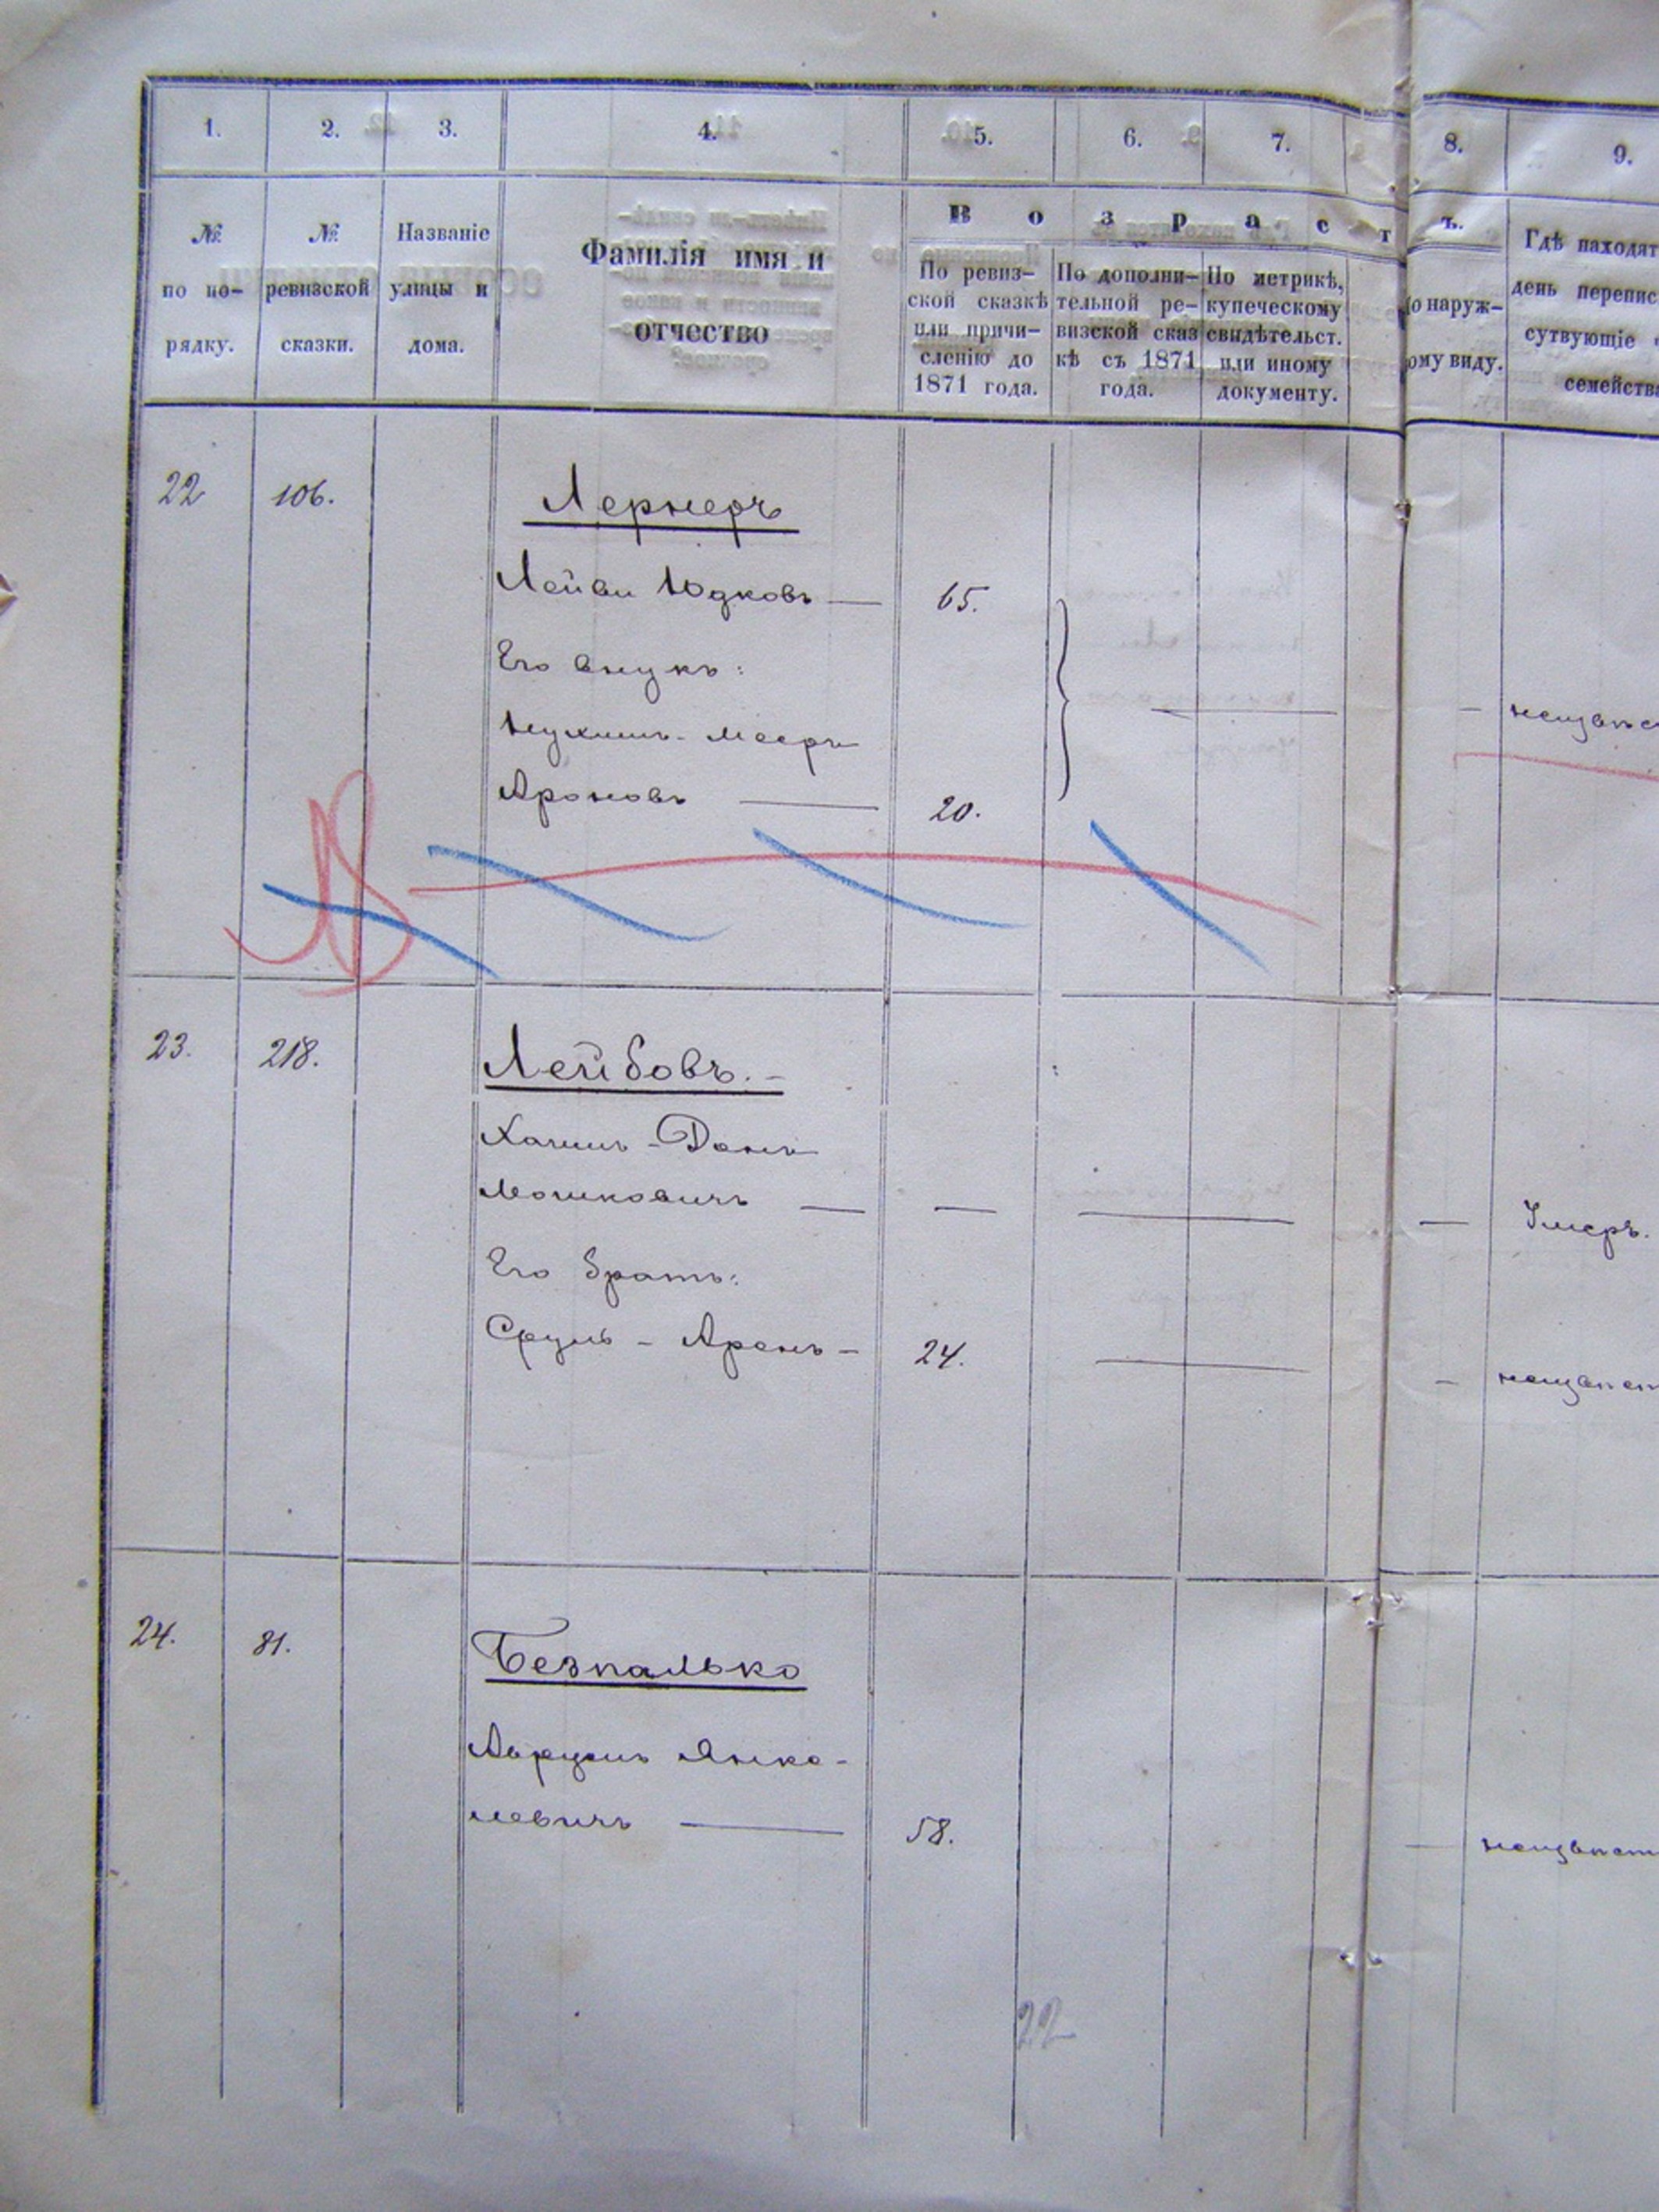 1. 2. 3. 4. 5. 6. 7. 8. 9.
№ по по-рядку.
№ ревизской сказки.
Названіе улицы и дома.
Фамилія имя и
отчество
Возрастъ.
По ревиз-
ской сказкѣ
или причи-
сленію до
1871 года.
По дополни-
тельной ре-
визской сказ
кѣ съ 1871
года.
По метрикѣ,
купеческому
свидѣтельст.
или иному
документу.
о наруж-
ому виду.
Гдѣ находят
день перепис
сутвующіе
семейства
22 106. Лернеръ
Лейви Юдковъ — 65.
Его внукъ:
Нухимъ-Мееръ
Ароновъ — 20.
23. 218. Лейбовъ.-
Хаимъ-Данъ
Мошковичъ — — — — Умеръ.
Его братъ:
Сруль - Аронъ - 24. — -
24. 81. Безпалько
Аврумъ Янке-
левичъ — 58. —
22